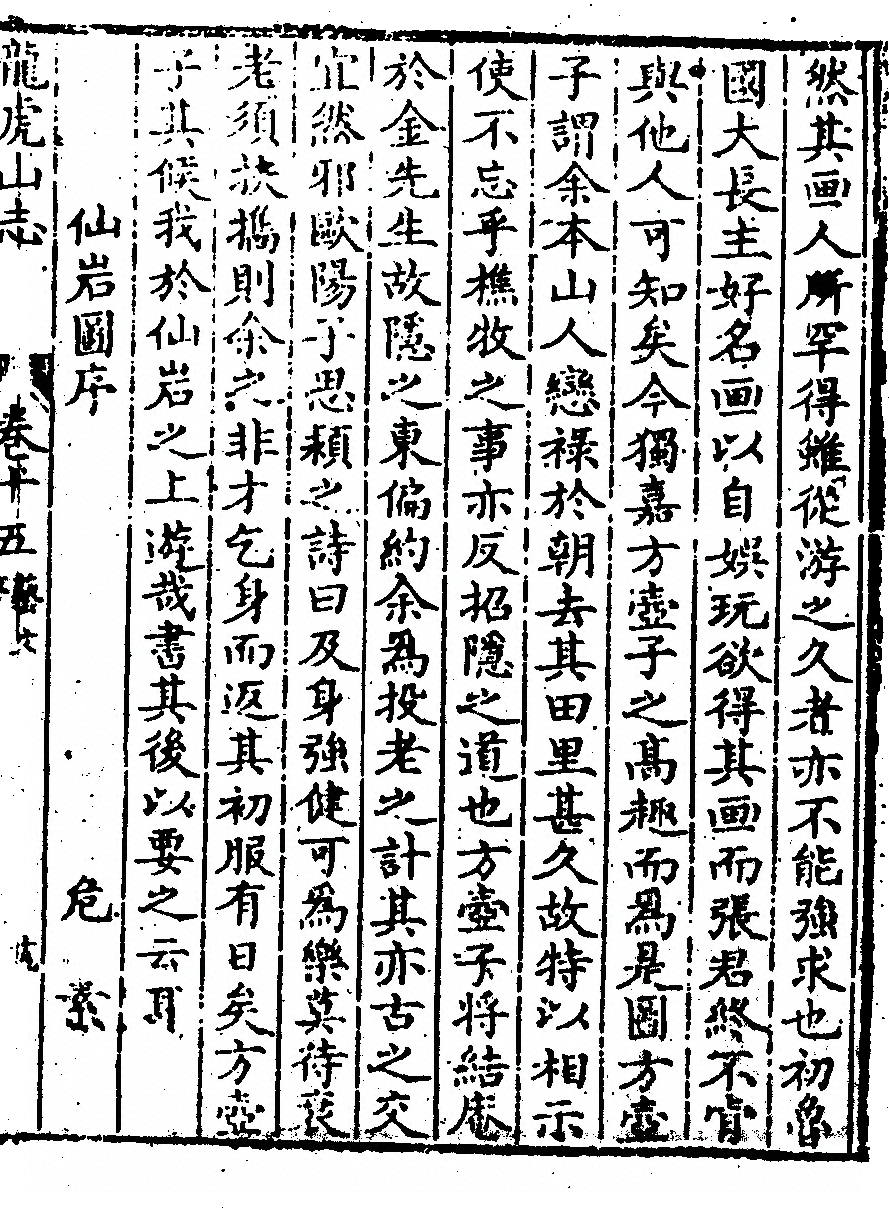 然其画人所罕得雖從游之久者亦不能強求也初魯
國大長主好名画以自娯玩欲得其画而張君終不肯
與他人可知矣今獨嘉方壺子之高趣而為是圖方壺
子謂余本山人戀祿於朝去其田里甚久故特以相示
使不忘乎樵牧之事亦反招隱之道也方壺子将結庵
於金先生故隱之東偏約余為投老之計其亦古之交
宜然邪歐陽子思穎之詩曰及身強健可為樂莫待衰
老須扶攜則余之非才乞身而返其初服有日矣方壺
子其候我於仙岩之上遊哉書其後以要之云耳
仙岩圖序 危素
龍虎山志 卷十五 藝文